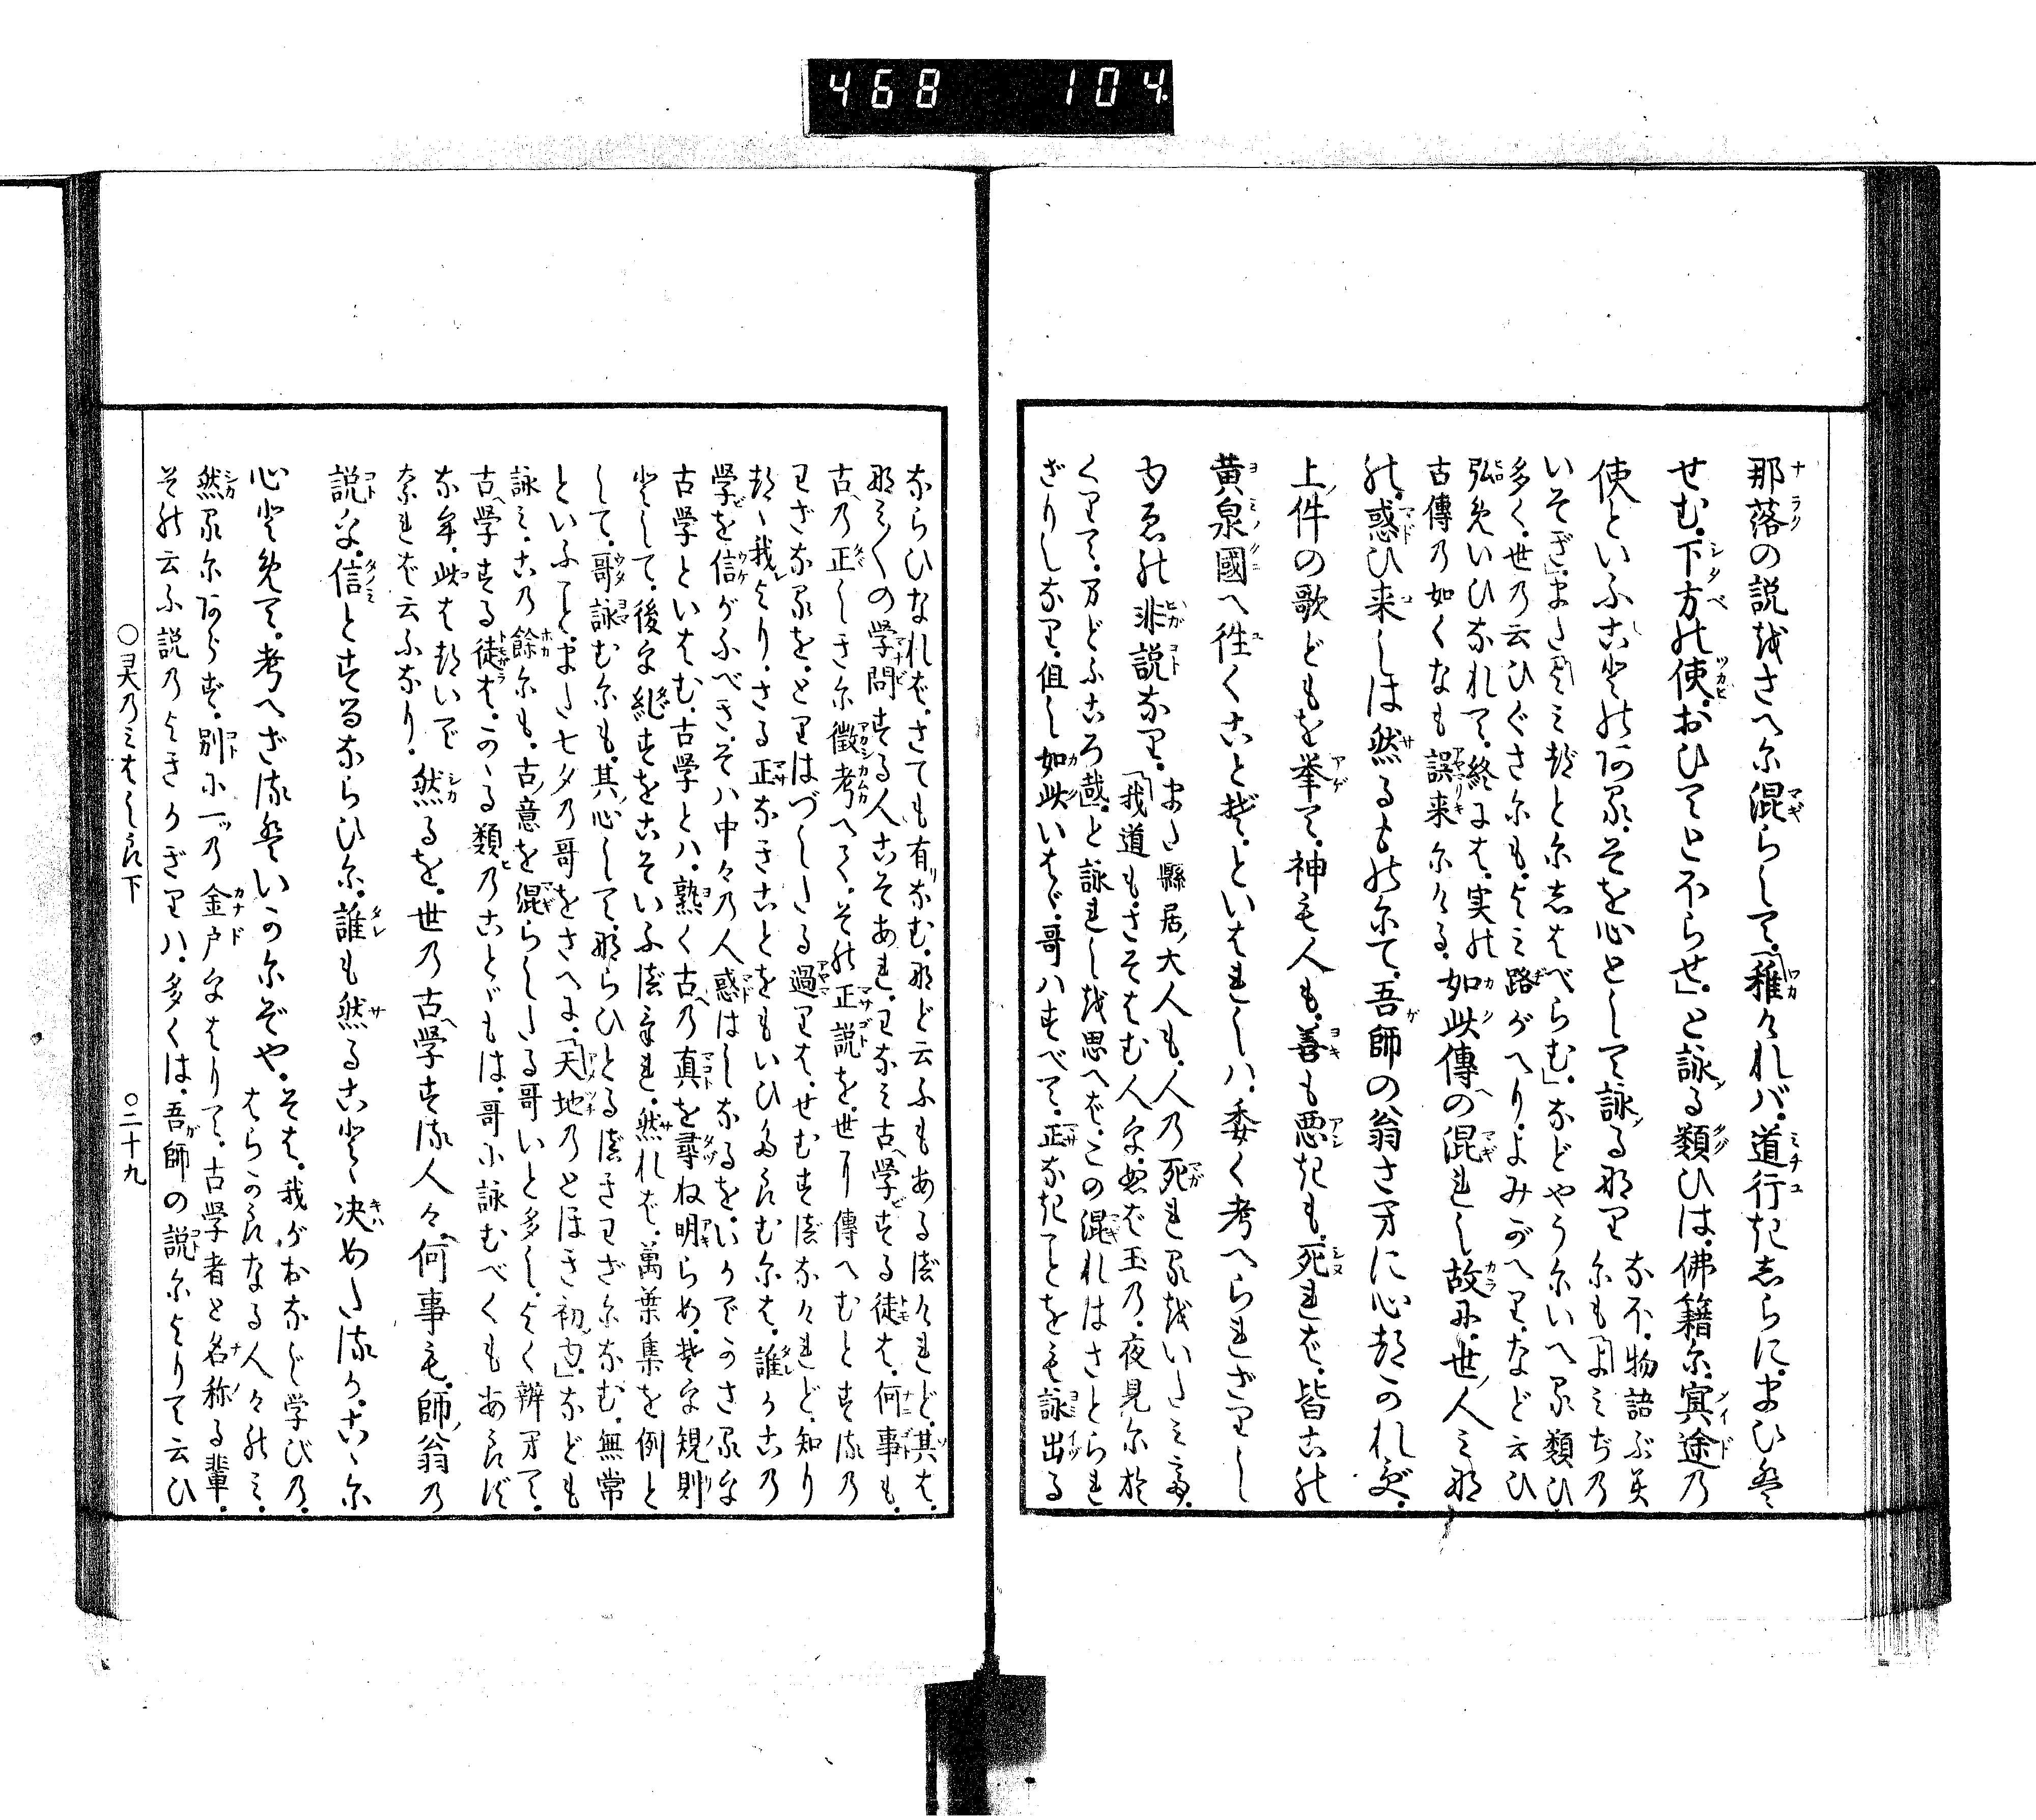 468 104
那落の説をさへに混らして、「稚ければ、道行きしらに、まひは
せむ、下方の使、おひてとほらせ」と詠る類ひは、佛籍に、冥途乃
使といふことのあるを心として詠るなり なほ、物語ぶみ
にも「よみぢの
いそぎ」、また「よみぢとにしはべらむ」などやうにいへる類ひ
多く、世の云ひぐさにも、よみ路がへり、よみがへり、など云ひ
弘めいひなれて、終には、実の
古傳の如くなも誤来にける、如此傳の混れし故に、世人みな
の、惑ひ来しは然るものにて、吾師の翁さへに心つかれず、
上件の歌どもを挙て、神も人も、善も悪きも、死れば、皆この
黄泉國へ往くことぞ、といはれしハ、委く考へられざりし
ゆゑの非説なり、また縣居大人も、人乃死れるをいたみて、
「我道も、さそはむ人に、ぬば玉乃、夜見におく
くりて、万どふころ哉、と詠れしを思へば、この混れはさとられ
ざりしなり、但し如此いはゞ、哥ハすべて、正なきことをも詠出る
ならひなれば、さても有なむ、など云ふもあるべけれど、其は、
なみ〳〵の学問する人こそあれ、わなみ古学する徒は、何事も、
古乃正しきに徴考へて、その正説を、世に傳へむとする乃
わざなるを、とりはづしたる過りは、せむすべなけれど、知り
つゝ我より、さる正なきことをもいひたらむには、誰かこの
学を信がふべき、そハ中々乃人惑はしなるを、いかでかさるな
古学といはむ、古学とハ、熟く古乃真を尋ね明らめ、そを規則
として、後を糺すをこそいふべけれ、然れば、萬葉集を例と
して、哥詠むにも、其心して、ならひとるべきわざになむ、無常
といふこと、また七夕乃哥をさへに、「天地乃とほき初ゆ」なども
詠み、この餘にも、古意を混らしたる哥いと多し、よく辨へて、
古学する徒は、かゝる類乃ことゞもは、哥に詠むべくもあらず
なむ、此はついで
なれば云ふなり、然るを、世乃古学する人々、何事も、師翁乃
説に、信とするならひに、誰も然ること決めたるか、こゝに
心とめて、考へざるはいかにぞや、そは、我がおなじ学び乃、
はらからなる人々のみ、
然るにあらず、別に一ツ乃金戸にはりて、古学者と名称る輩、
その云ふ説乃よきかぎりハ、多くは、吾師の説によりて云ひ
○霊乃みはしら下 ○二十九